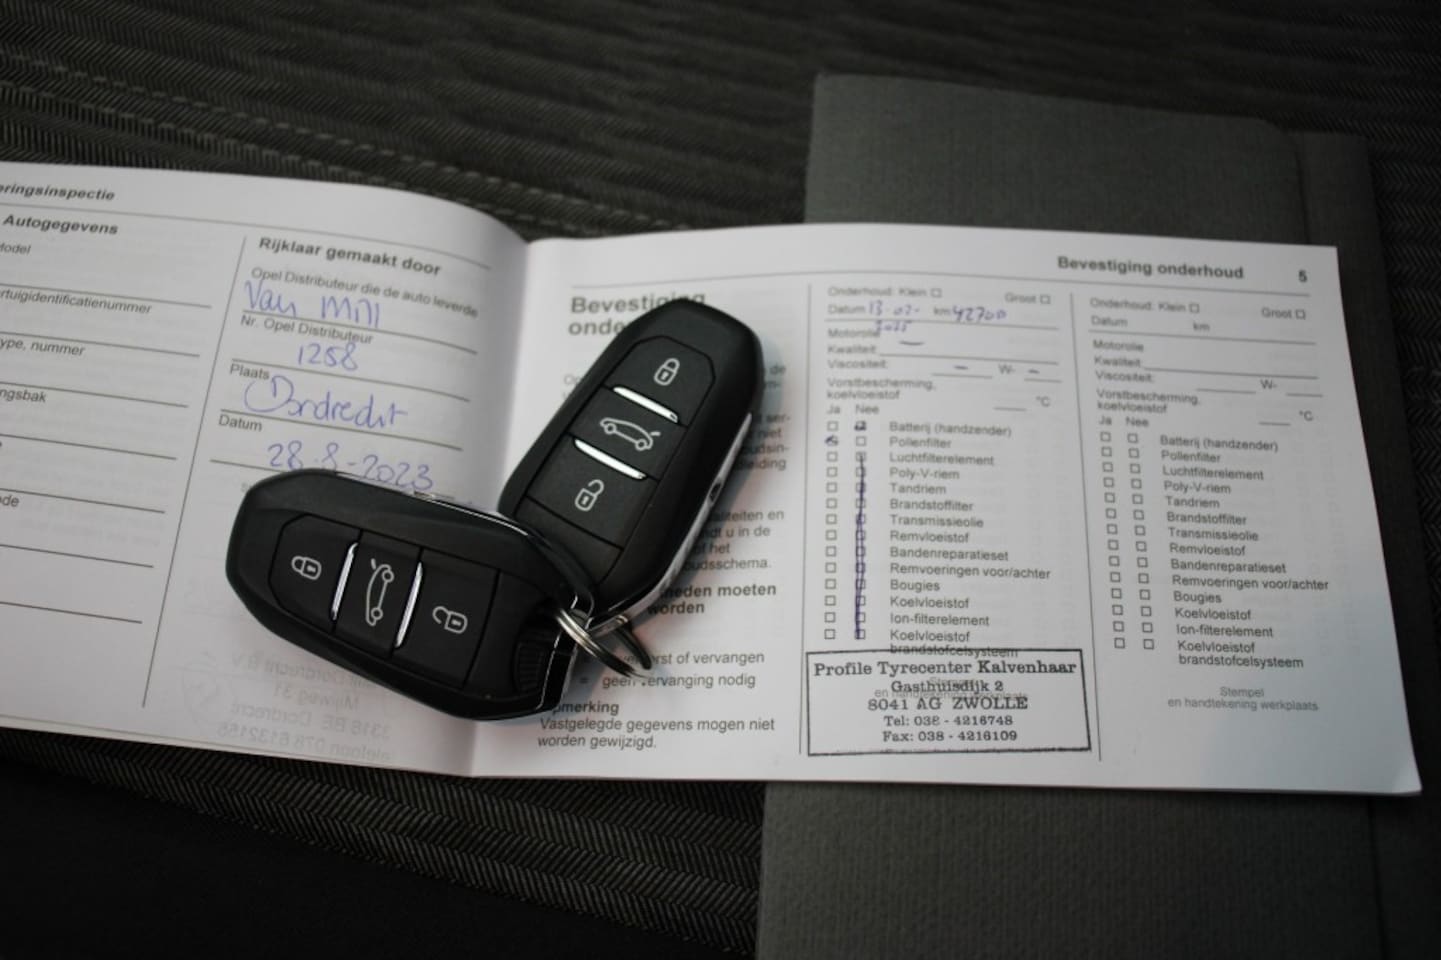 eringsinspectie
Autogegevens
Model
rtuigidentificatienummer
ype, nummer
ngsbak
de
Rijklaar gemaakt door
Opel Distributeur die de auto leverde
Van Mill
Nr. Opel Distributeur
1258
Plaats
Dordrecht
Datum
28-8-2023
Bevestiging
onde
de
ser-
niet
oudsin-
leiding
aliteiten en
ndt u in de
of het
oudsschema.
heden moeten
worden
ververst of vervangen
= geen vervanging nodig
Opmerking
Vastgelegde gegevens mogen niet
worden gewijzigd.
Bevestiging onderhoud 5
Onderhoud: Klein ☐ Groot ☐
Datum 13-02- km 42700
2025
Motorolie
Kwaliteit:
Viscositeit: W-
Vorstbescherming,
koelvloeistof °C
Ja Nee
Batterij (handzender)
Pollenfilter
Luchtfilterelement
Poly-V-riem
Tandriem
Brandstoffilter
Transmissieolie
Remvloeistof
Bandenreparatieset
Remvoeringen voor/achter
Bougies
Koelvloeistof
Ion-filterelement
Koelvloeistof
brandstofcelsysteem
Stempel
en handtekening werkplaats
Profile Tyrecenter Kalvenhaar
Gasthuisdijk 2
8041 AG ZWOLLE
Tel: 038 - 4216748
Fax: 038 - 4216109
Onderhoud: Klein ☐ Groot ☐
Datum km
Motorolie
Kwaliteit:
Viscositeit: W-
Vorstbescherming,
koelvloeistof °C
Ja Nee
Batterij (handzender)
Pollenfilter
Luchtfilterelement
Poly-V-riem
Tandriem
Brandstoffilter
Transmissieolie
Remvloeistof
Bandenreparatieset
Remvoeringen voor/achter
Bougies
Koelvloeistof
Ion-filterelement
Koelvloeistof
brandstofcelsysteem
Stempel
en handtekening werkplaats